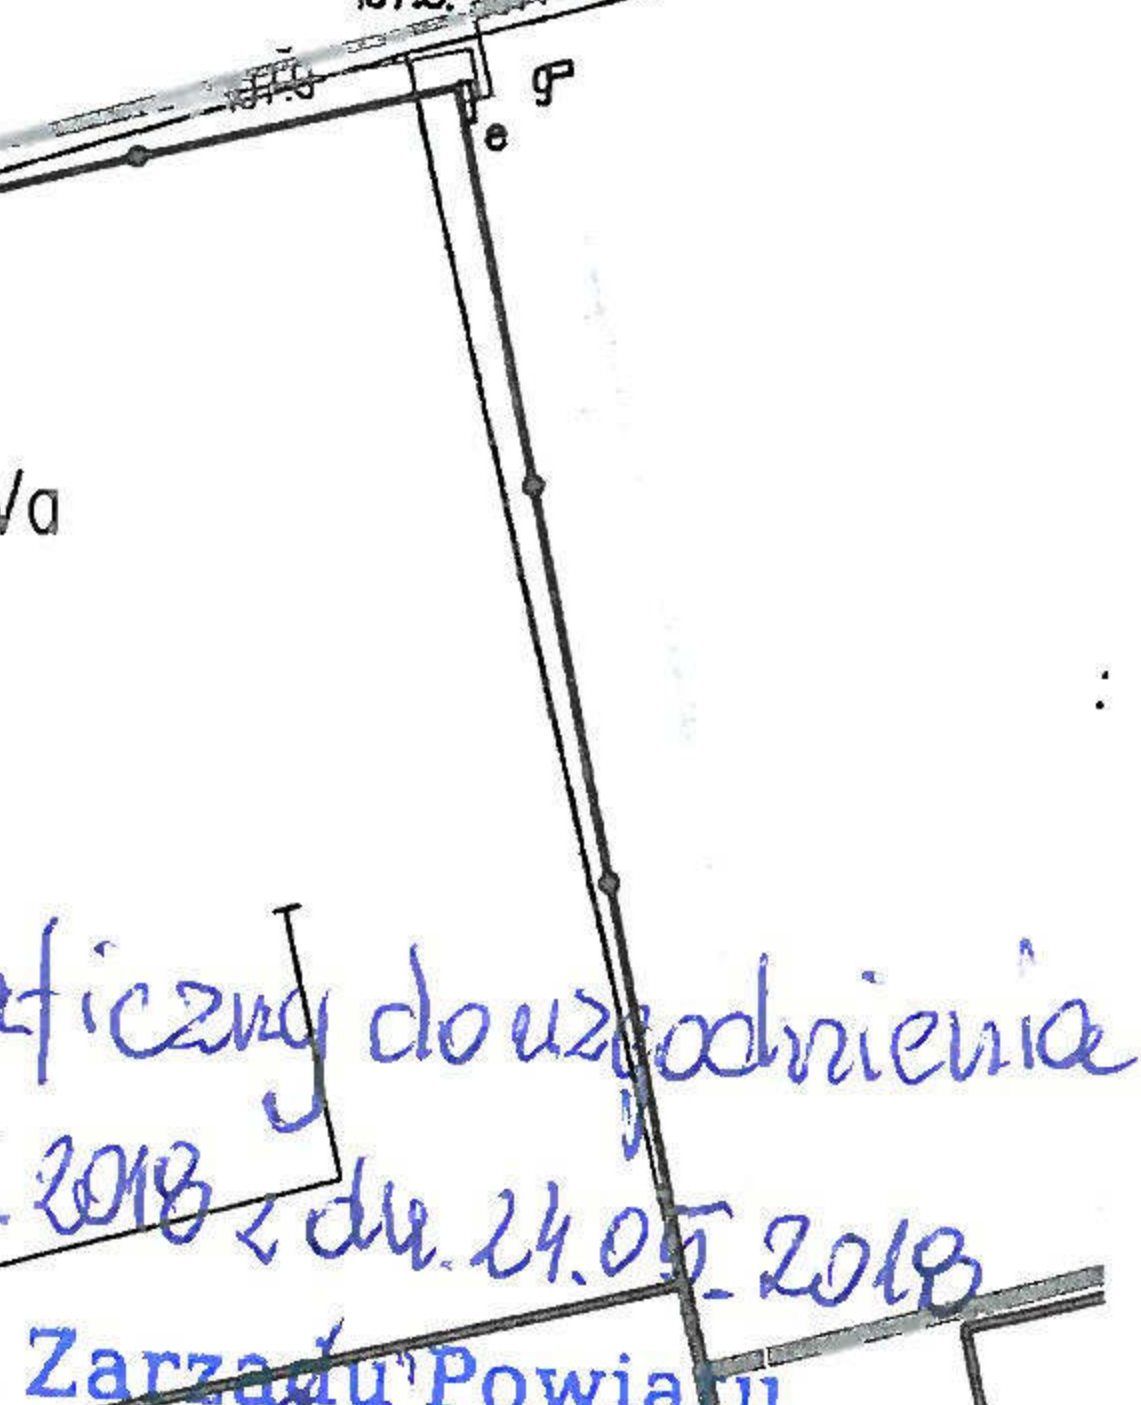 g
e
/a
ficzny do uzgodnienia
. 2018 z dn. 24.05.2018
Zarządu Powiatu